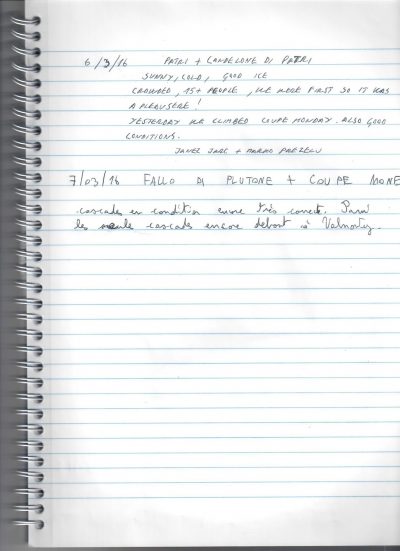 6/3/16 PATRI + CANDELONE DI PATRI
SUNNY, COLD, GOOD ICE
CROWDED, 15+ PEOPLE, WE WERE FIRST SO IT WAS
A PLEAUSERE!
YESTERDAY WE CLIMBED COUPE MONDAY. ALSO GOOD
CONDITIONS.
JANEZ + MARKO
7/03/16 FALLO DI PLUTONE + COUPE MONE
cascades en condition encore très correcte. Parmi
les seules cascades encore debout à Valnontey.